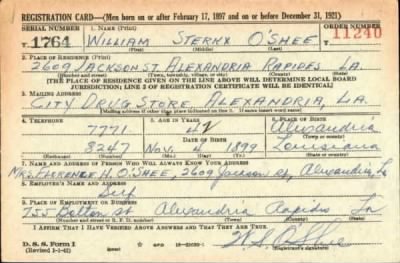 REGISTRATION CARD—(Men born on or after February 17, 1897 and on or before December 31, 1921)
SERIAL NUMBER 1. NAME (Print) ORDER NUMBER
T 1764 WILLIAM STERKX O'SHEE 11240
(First) (Middle) (Last)
2. PLACE OF RESIDENCE (Print)
2609 JACKSON ST. ALEXANDRIA RAPIDES LA.
(Number and street) (Town, township, village, or city) (County) (State)
[THE PLACE OF RESIDENCE GIVEN ON THE LINE ABOVE WILL DETERMINE LOCAL BOARD
JURISDICTION; LINE 2 OF REGISTRATION CERTIFICATE WILL BE IDENTICAL]
3. MAILING ADDRESS
CITY DRUG STORE, ALEXANDRIA, LA.
[Mailing address if other than place indicated on line 2. If same insert word same]
4. TELEPHONE 5. AGE IN YEARS 6. PLACE OF BIRTH
7771 42 Alexandria
DATE OF BIRTH (Town or county)
8247 Nov. 4 1899 Louisiana
(Mo.) (Day) (Yr.) (State or country)
7. NAME AND ADDRESS OF PERSON WHO WILL ALWAYS KNOW YOUR ADDRESS
Mrs. Florence H. O'Shee, 2609 Jackson St, Alexandria, La
8. EMPLOYER'S NAME AND ADDRESS
Self
9. PLACE OF EMPLOYMENT OR BUSINESS
755 Bolton St Alexandria Rapides La
(Number and street or R. F. D. number) (Town) (County) (State)
I AFFIRM THAT I HAVE VERIFIED ABOVE ANSWERS AND THAT THEY ARE TRUE.
D. S. S. Form 1
(Revised 1-1-42) (over) W. S. O'Shee